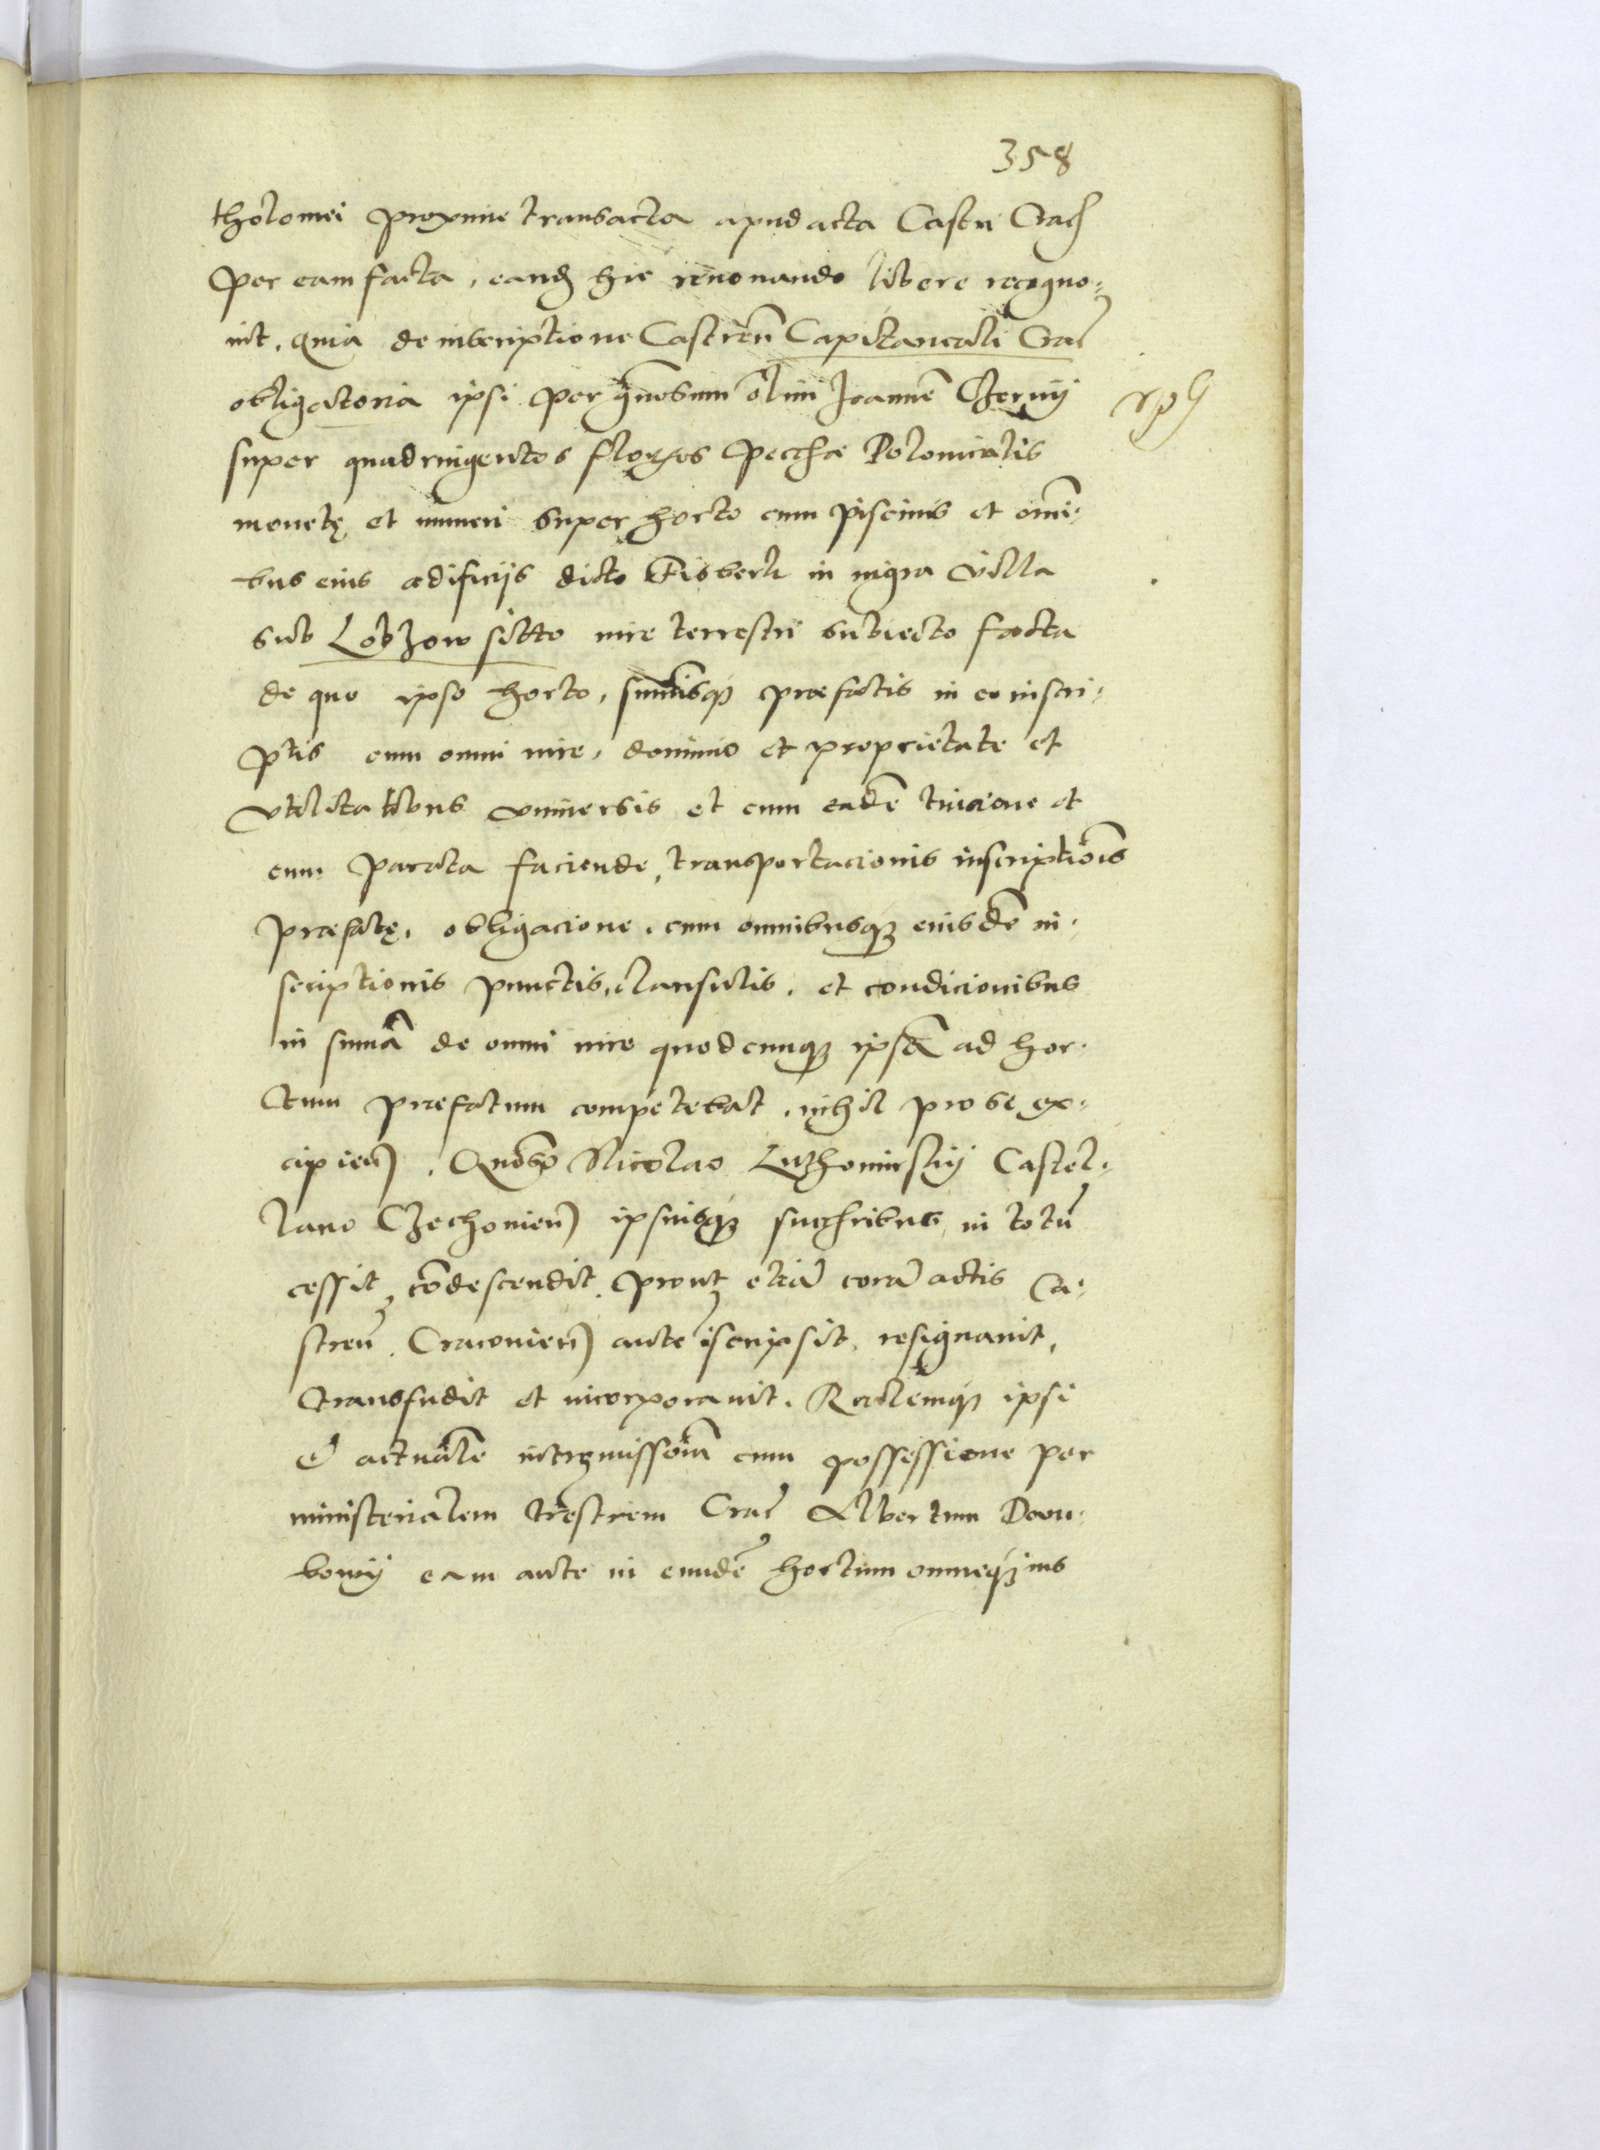 358
tholomei proxime transacta apud acta Castri Crac
per eam facta, eand hic renouando libere recogno-
uit. Quia de inscriptione Castren Capitaneali Crac
obligatoria ipsi per gnosum olim Joannē Czerny
super quadringentos florenos pecchæ Polonicalis
monetę et numeri super horto cum piscinis et omni-
bus eius ædificijs dicto Fisberk in nigra villa
sub Lobzow sitto iure terrestri subiecto facta
de quo ipso horto, summisq præfatis in eo inscri-
ptis cum omni iure, dominio et proprietate et
vtilitatibus vniuersis et cum eadē tuicione et
cum parata faciende transportacionis inscriptiōis
præfatę, obligacione, cum omnibusq eiusdē in-
scriptionis punctis, clausulis, et condicionibus
in sumā de omni iure quodcunq ipsā ad hor-
tum præfatum competebat, nihil pro se ex-
cipien. Gnoso Nicolao Luthomirsky Castel-
lano Czechouien ipsiusq succribus in totū
cessit, cōdescendit, prout etiā corā actis Ca-
stren Cracouien ante iscripsit, resignauit,
transfudit et incorporauit. Realemq ipsi
et actualē intromissionē cum possessione per
ministerialem trestrem Crac Albertum
eam ante in eundē hortum omneq ius